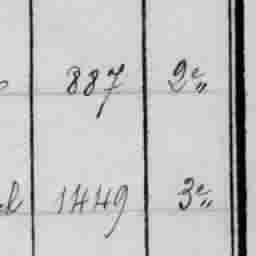 887 2e„
1449 3e„